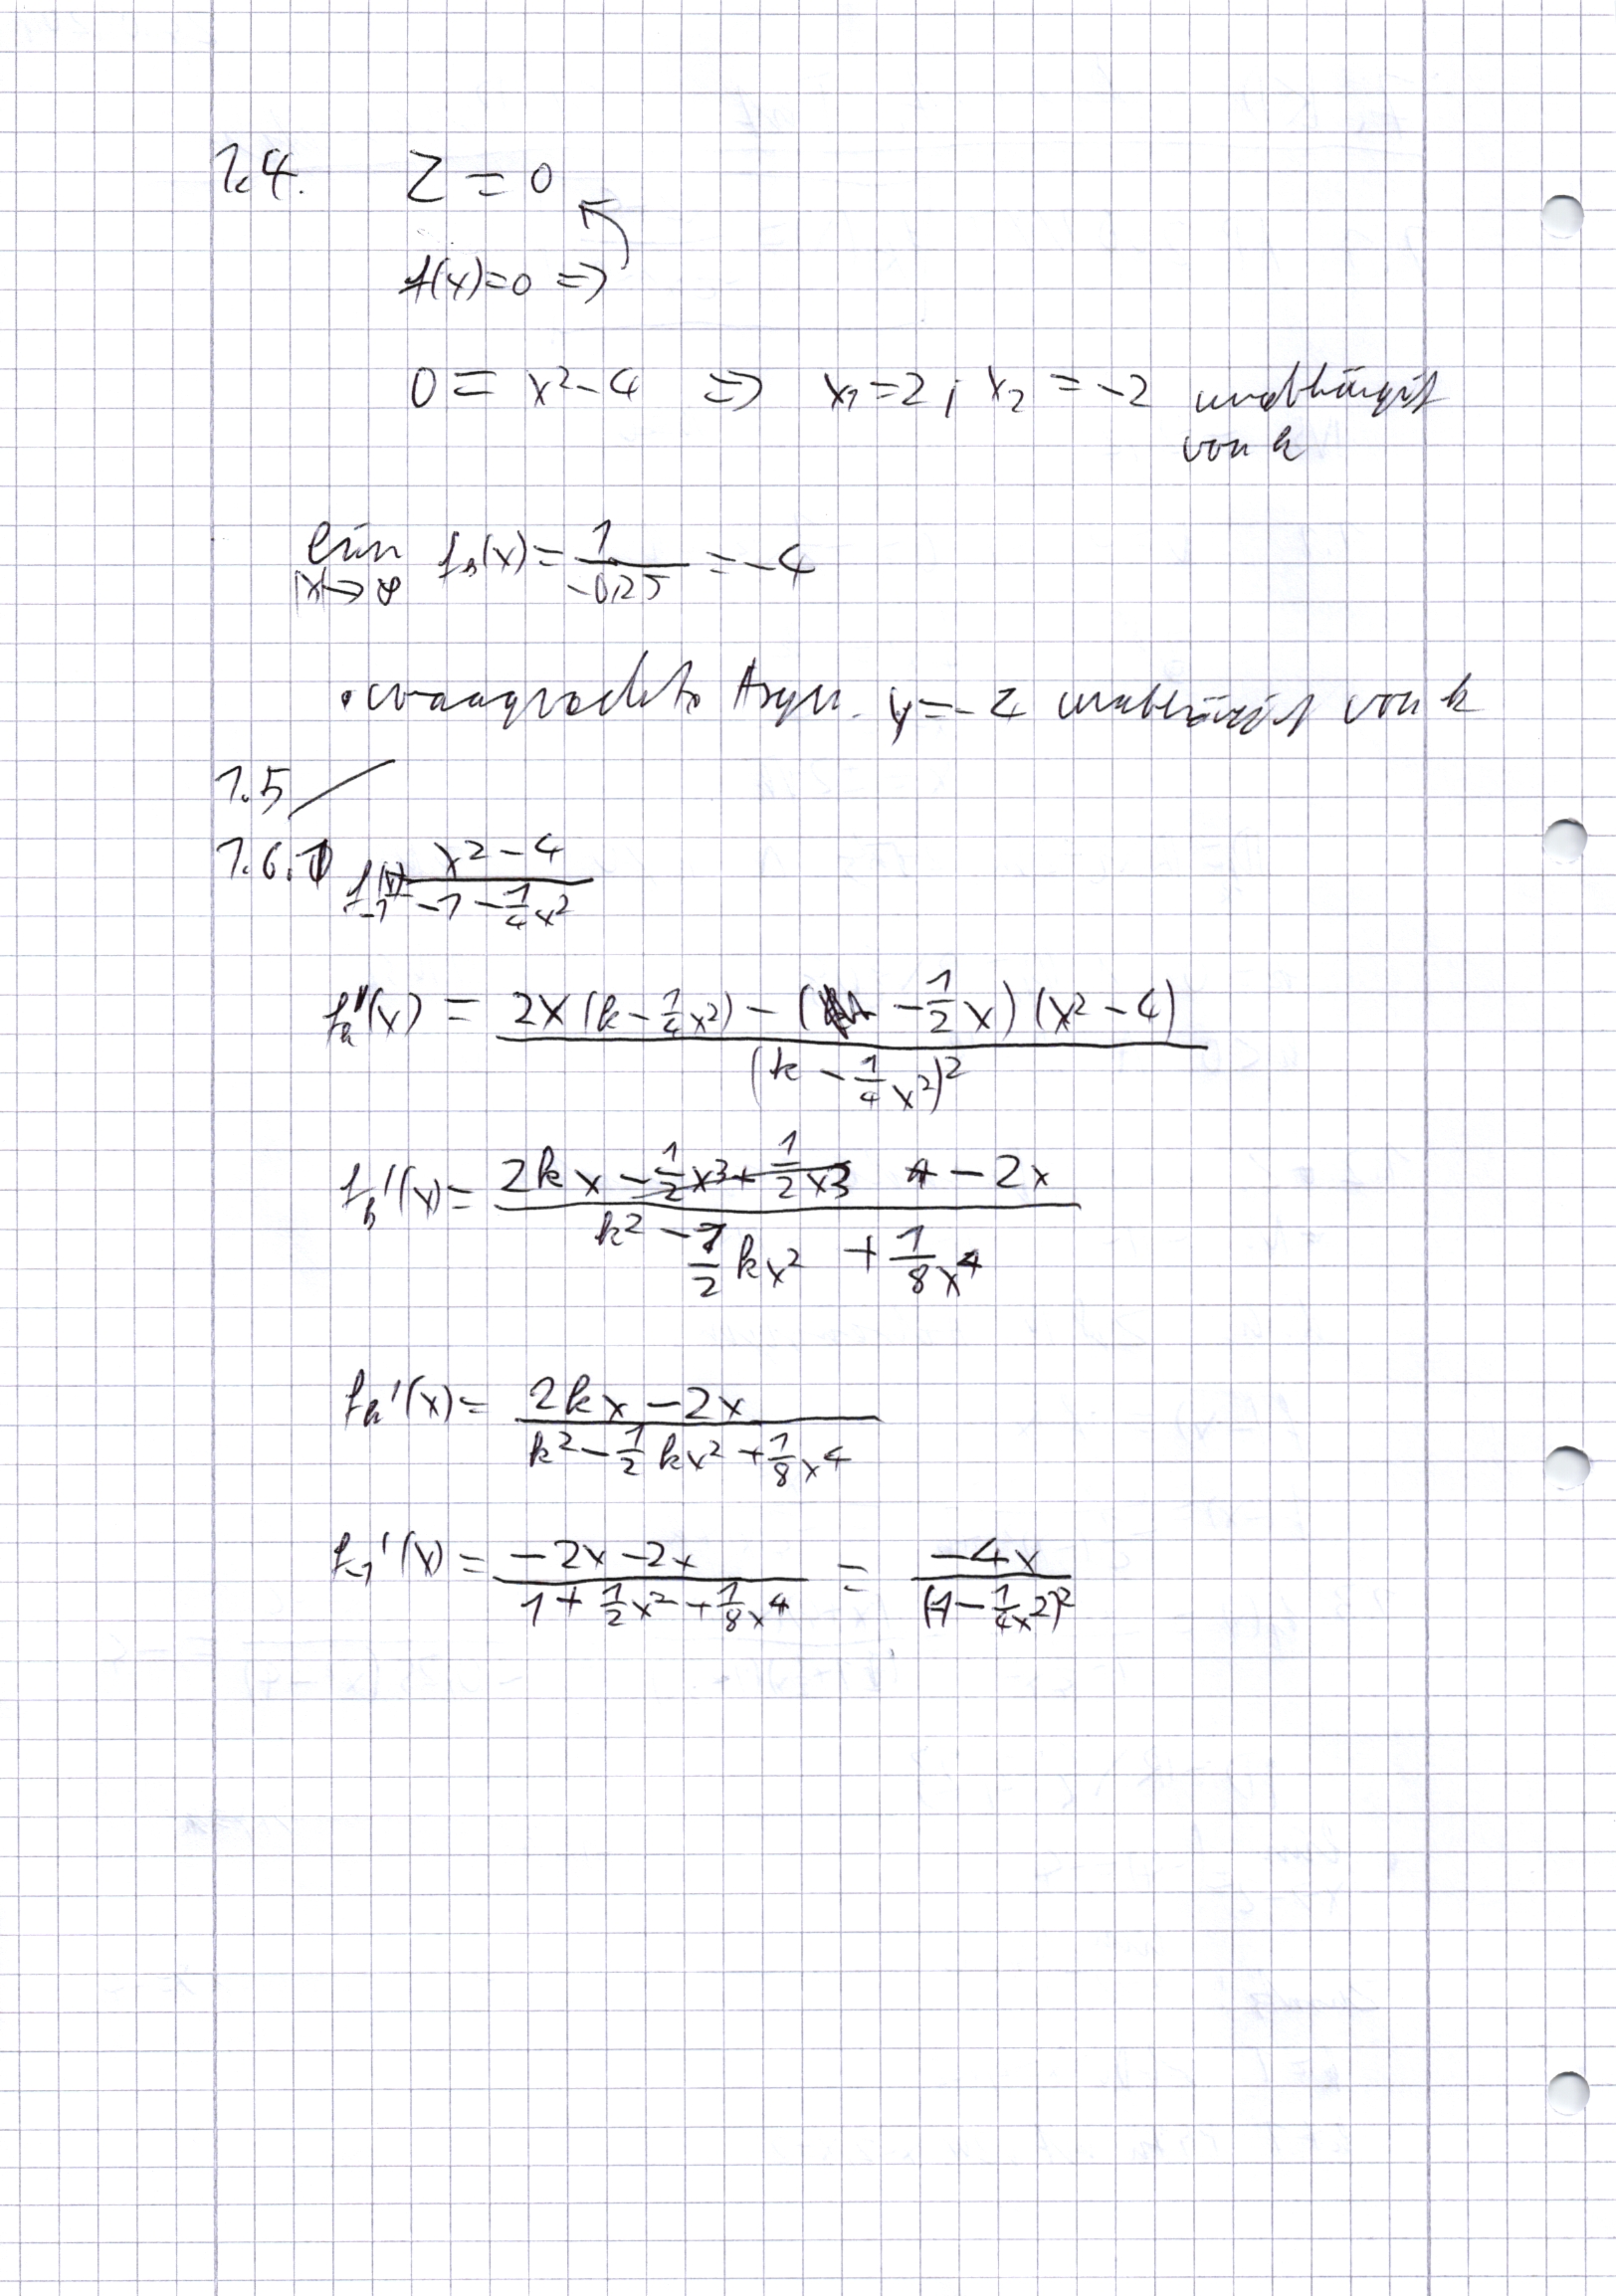 1.4. Z = 0
f(x)=0 =>
0 = x² - 4 => x₁=2 ; x₂ = -2 unabhängig
von k
lim |x|→∞ fₖ(x) = 1/(-0,25) = -4
• waagrechte Asym. y=-4 unabhängig von k
1.5 /
1.6.1 f₋₁(x) = (x² - 4)/(-1 - 1/4 x²)
fₖ'(x) = (2x (k - 1/4 x²) - (-1/2 x) (x² - 4))/(k - 1/4 x²)²
fₖ'(x) = (2kx - 1/2 x³ + 1/2 x³ - 2x)/(k² - 1/2 kx² + 1/8 x⁴)
fₖ'(x) = (2kx - 2x)/(k² - 1/2 kx² + 1/8 x⁴)
f₋₁'(x) = (-2x - 2x)/(1 + 1/2 x² + 1/8 x⁴) = (-4x)/(-1 - 1/4 x²)²